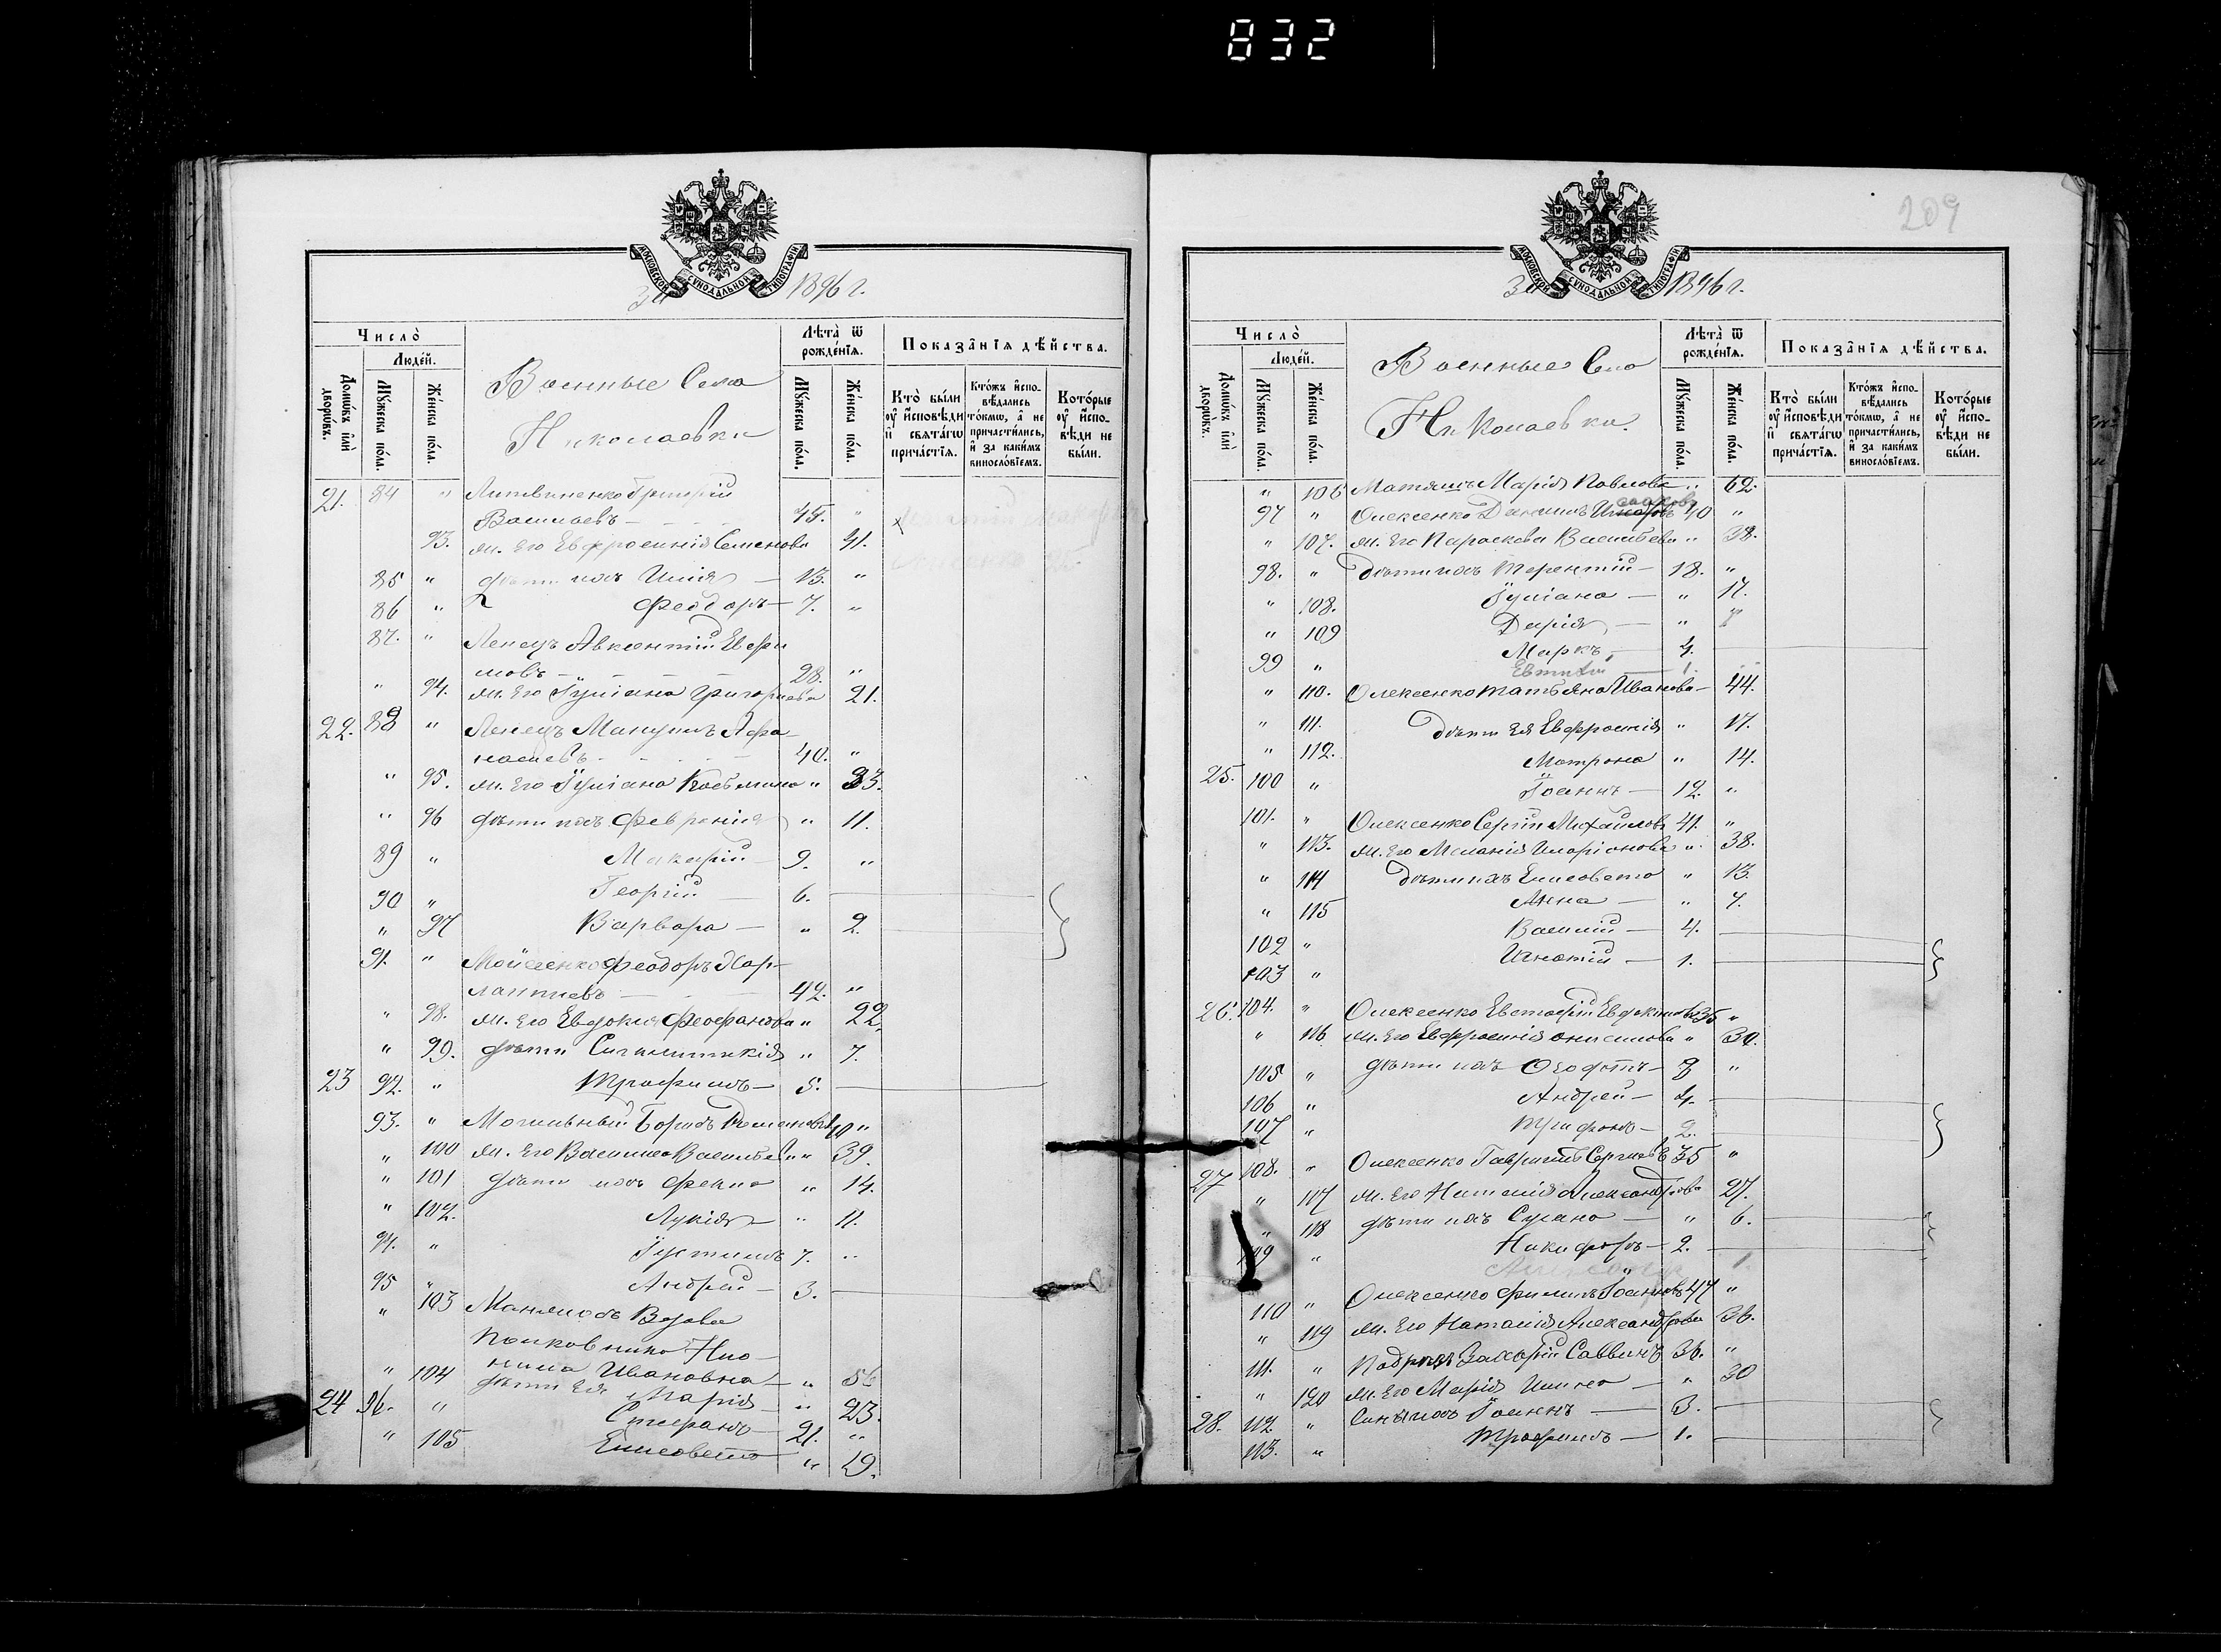 832
209
МОСКОВСКОЙ СѴНОДАЛЬНОЙ ТИПОГРАФІИ
За 1896 г.
Число̀
Людéй.
Домѡ́въ и҆лѝ дворѡ́въ.
Мꙋ́жеска по́ла.
Же́нска по́ла.
Военные Села
Николаевки
Лѣта̀ ѿ рожде́нїѧ.
Мꙋ́жеска по́ла.
Же́нска по́ла.
Показа̑нїѧ дѣ́йства.
Кто̀ бы́ли ᲂу҆ и҆сповѣ́ди и҆ свѧта́гѡ прича́стїѧ.
Кто́жъ и҆спо-вѣ́дались то́кмѡ, а҆ не причасти́лись, и҆ за каки́мъ виносло́вїемъ.
Кото́рые ᲂу҆ и҆спо-вѣ́ди не бы́ли.
21. 84 " Литвиненко Григорій
Васильевъ — 45. "
93. ж. его Евфросинія Семенова 41.
85 " дѣти ихъ Илія — 13. "
86 " Феодоръ — 7. "
87. " Ленецъ Авксентій Ефи
мовъ — 28. "
" 94. ж. его Іуліана Григорьева 21.
22. 88 " Ленецъ Мануилъ Афа-
насьевъ 40. "
" 95. ж. его Іуліана Косьмина " 33.
" 96 дѣти ихъ Февронія " 11.
89 " Макарій 9. "
90 " Георгій — 6.
" 97 Варвара — " 2.
91. " Мойсеенко Феодоръ Хар-
лампіевъ — 42. "
" 98. ж. его Евдокія Феофанова " 22
" 99. дѣти Синклитикія " 7.
23 92. " Трофимъ — 5.
93. " Могильный Борисъ 40 "
" 100 ж. его Василиса Васильева " 39.
" 101 дѣти ихъ Фекла " 14.
" 102. Лукія — " 11.
94. " Іустинъ 7. "
95 " Андрей — 3.
" 103 Вдова
Полковника
Ивановна — " 56
" 104 дѣти ея Марія " 23.
24 96. " Стефанъ — 21. "
" 105 Елисавета " 19.
За 1896 г.
Число̀
Людéй.
Домѡ́въ и҆лѝ дворѡ́въ.
Мꙋ́жеска по́ла.
Же́нска по́ла.
Военные Села
Николаевка.
Лѣта̀ ѿ рожде́нїѧ.
Мꙋ́жеска по́ла.
Же́нска по́ла.
Показа̑нїѧ дѣ́йства.
Кто̀ бы́ли ᲂу҆ и҆сповѣ́ди и҆ свѧта́гѡ прича́стїѧ.
Кто́жъ и҆спо-вѣ́дались то́кмѡ, а҆ не причасти́лись, и҆ за каки́мъ виносло́вїемъ.
Кото́рые ᲂу҆ и҆спо-вѣ́ди не бы́ли.
" 106 Матяшъ Марія Павлова " 62.
97 " Олексенко Даніилъ 40 "
" 107. ж. его Параскева Васильева " 38.
98. " дѣти ихъ Терентій — 18. "
" 108. Іуліана — " 17.
" 109 Дарія — "
99 " Маркъ, — 4.
Евтихій — 1.
" 110. Олексенко Татьяна Иванова — 44.
" 111. дѣти ея Евфросинія " 17.
" 112. Матрона " 14.
25. 100 " Іоаннъ — 12. "
101. " Олексенко Сергій Михайловъ 41. "
" 113. ж. его Меланія Иларіонова " 38.
" 114 дѣти ихъ Елисавета " 13.
" 115 Анна — " 7.
102 " Василій — 4.
103 " Игнатій — 1.
26. 104. " Олексенко Евстафій Евдокимовъ 35 "
" 116 ж. его Евфросинія Онисимова " 30.
105 " дѣти ихъ Феодотъ — 8 "
106 " Андрей — 4.
107 " Трифонъ — 2.
27 108. " Олексенко Гавріилъ Сергіевъ 35 "
" 117 ж. его Наталія Александрова 27.
" 118 дѣти ихъ Сусана — " 6.
109 " Никифоръ — 2.
110 " Олексенко Филиппъ Іоанновъ 47 "
" 119 ж. его Наталія Александрова 36.
111. " Захарій Саввинъ 36. "
" 120 ж. его Марія Ильина — " 30
28. 112 " Сынъ ихъ Іоаннъ — 3.
113. " Трофимъ — 1.